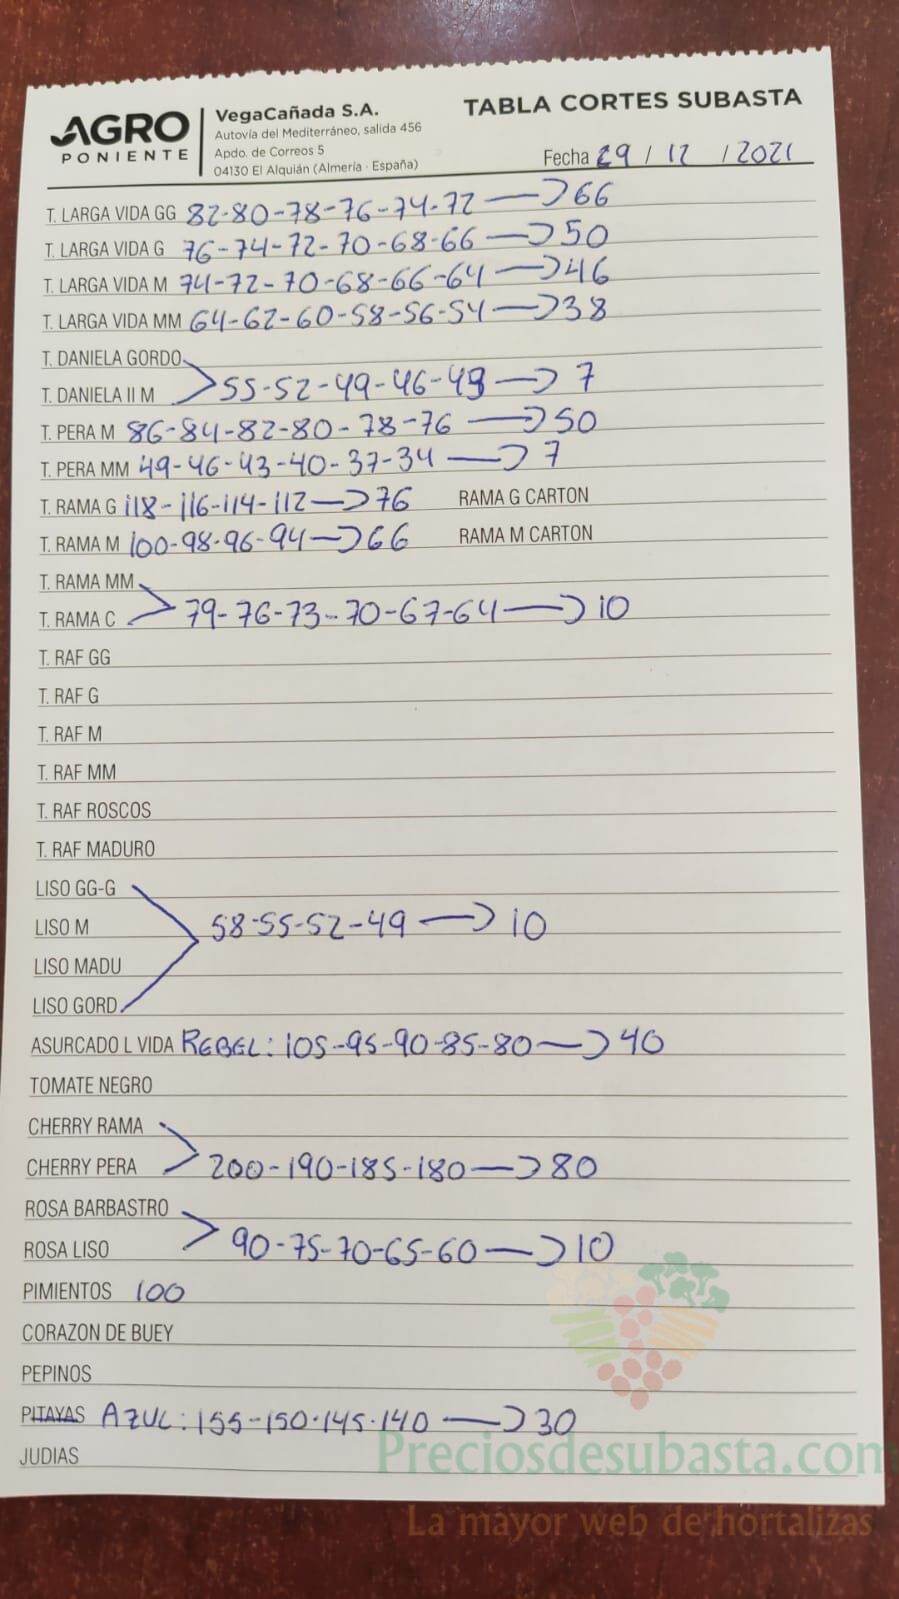 AGRO
PONIENTE
VegaCañada S.A.
Autovía del Mediterráneo, salida 456
Apdo. de Correos 5
04130 El Alquián (Almería · España)
TABLA CORTES SUBASTA
Fecha 29 / 12 / 2021
T. LARGA VIDA GG 82-80-78-76-74-72 → 66
T. LARGA VIDA G 76-74-72-70-68-66 → 50
T. LARGA VIDA M 74-72-70-68-66-64 → 46
T. LARGA VIDA MM 64-62-60-58-56-54 → 38
T. DANIELA GORDO
T. DANIELA II M 55-52-49-46-43 → 7
T. PERA M 86-84-82-80-78-76 → 50
T. PERA MM 49-46-43-40-37-34 → 7
T. RAMA G 118-116-114-112 → 76 RAMA G CARTON
T. RAMA M 100-98-96-94 → 66 RAMA M CARTON
T. RAMA MM
T. RAMA C 79-76-73-70-67-64 → 10
T. RAF GG
T. RAF G
T. RAF M
T. RAF MM
T. RAF ROSCOS
T. RAF MADURO
LISO GG-G
LISO M 58-55-52-49 → 10
LISO MADU
LISO GORD
ASURCADO L VIDA REBEL: 105-95-90-85-80 → 40
TOMATE NEGRO
CHERRY RAMA
CHERRY PERA 200-190-185-180 → 80
ROSA BARBASTRO
ROSA LISO 90-75-70-65-60 → 10
PIMIENTOS 100
CORAZON DE BUEY
PEPINOS
PITAYAS AZUL: 155-150-145-140 → 30
JUDIAS
Preciosdesubasta.com
La mayor web de hortalizas